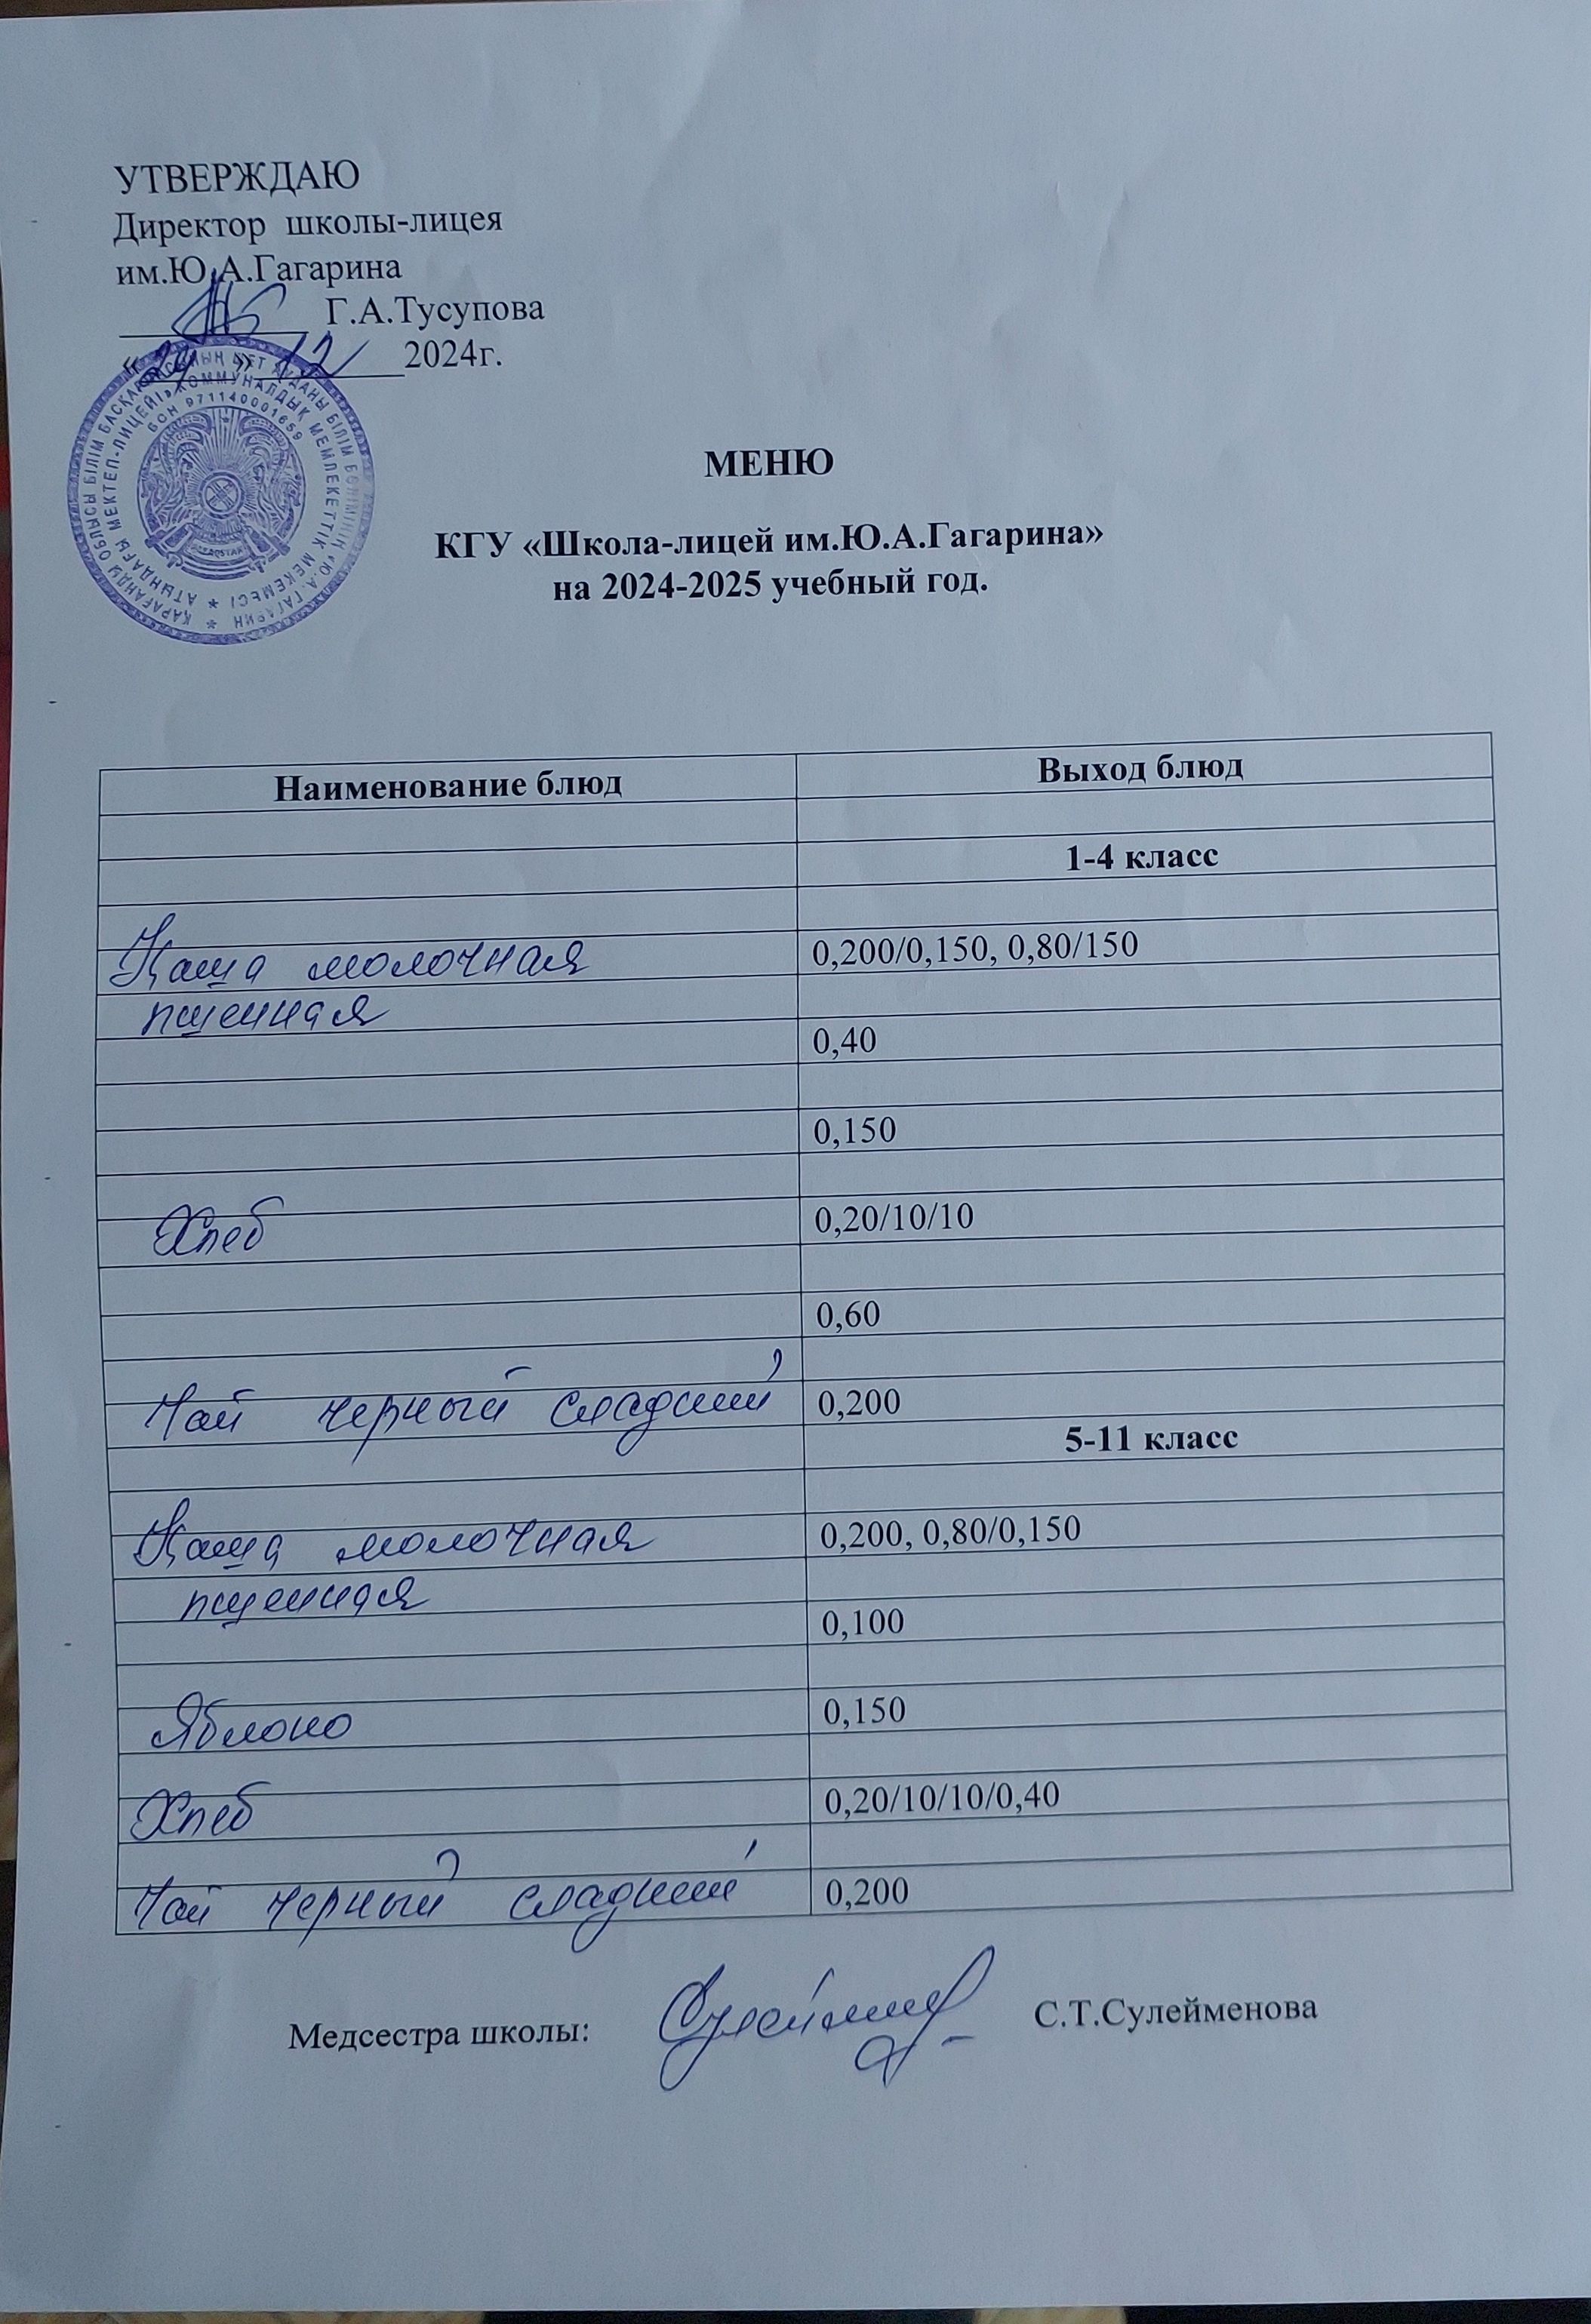 УТВЕРЖДАЮ
Директор школы-лицея
им.Ю.А.Гагарина
Г.А.Тусупова
« » 12 2024г.
БСН 971140001659
МЕНЮ
КГУ «Школа-лицей им.Ю.А.Гагарина»
на 2024-2025 учебный год.
Наименование блюд Выход блюд
1-4 класс
Каша молочная 0,200/0,150, 0,80/150
пшенная
0,40
0,150
Хлеб 0,20/10/10
0,60
Чай черный сладкий 0,200
5-11 класс
Каша молочная 0,200, 0,80/0,150
пшенная
0,100
Яблоко 0,150
Хлеб 0,20/10/10/0,40
Чай черный сладкий 0,200
Медсестра школы: С.Т.Сулейменова